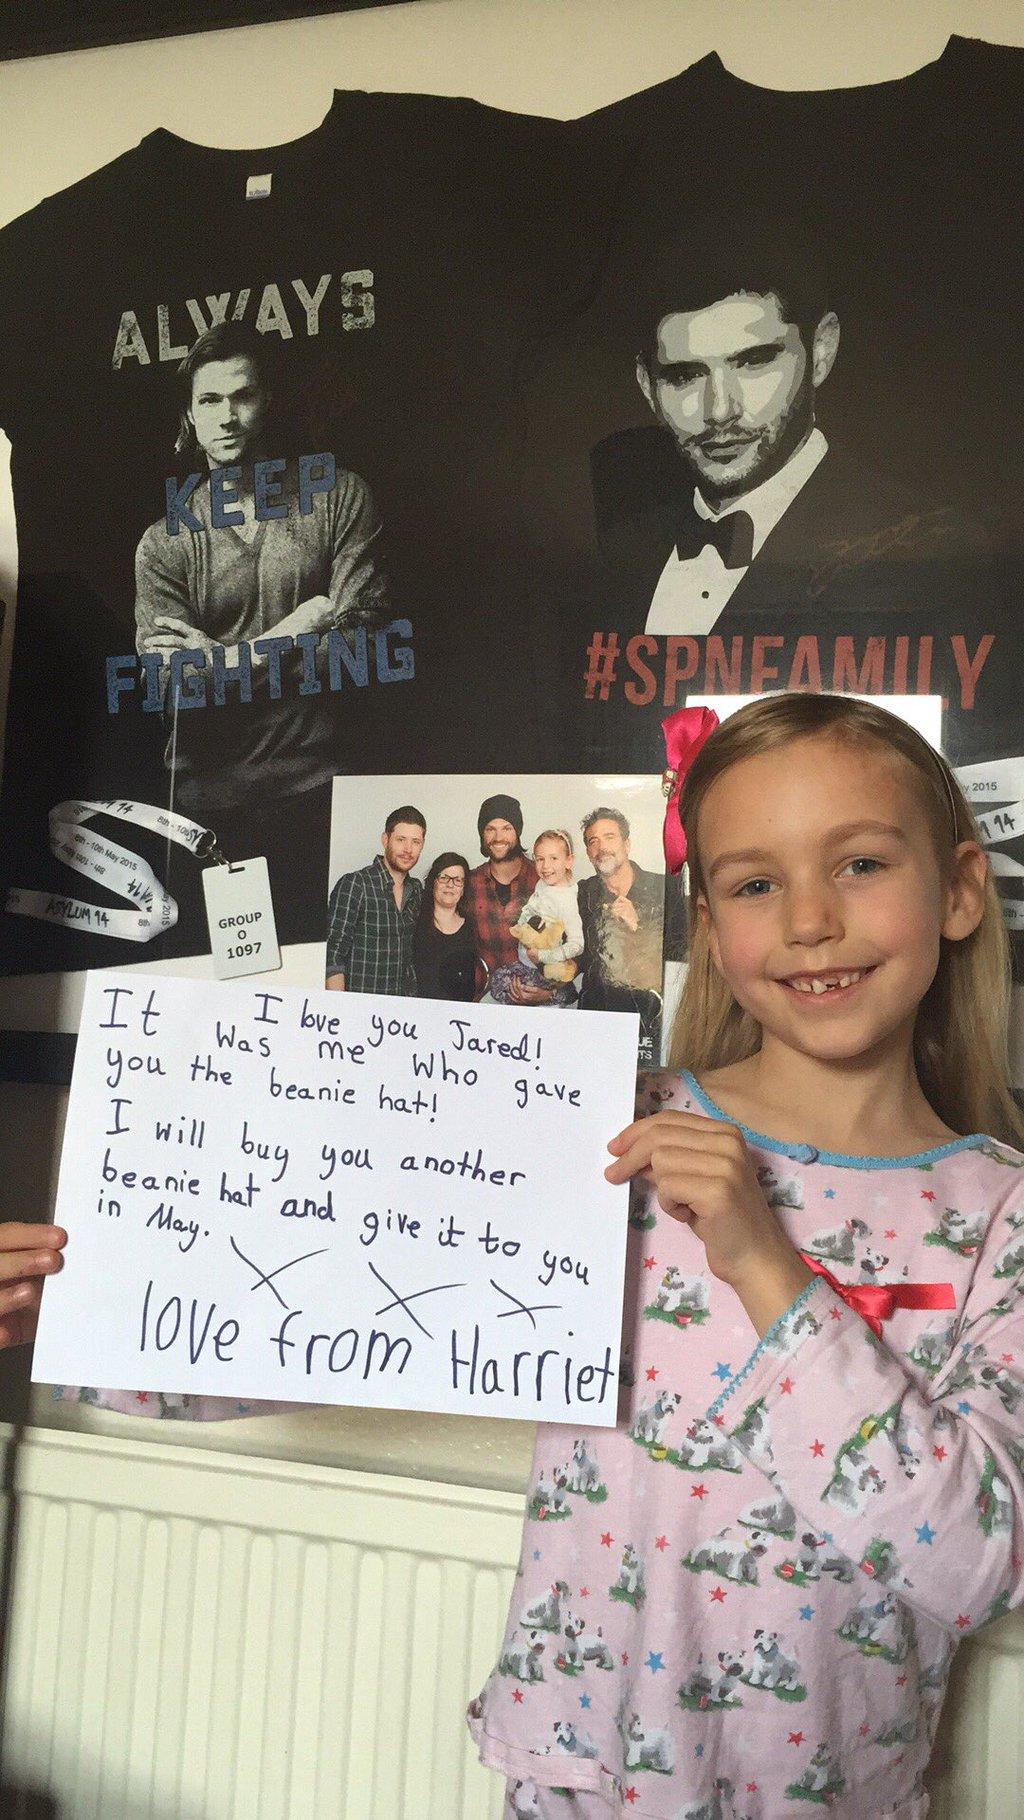 ALWAYS
KEEP
FIGHTING
#SPNFAMILY
8th - 10th May 2015
ASYLUM 14
8th
2015
GROUP
O
1097
y 2015
14
I love you Jared!
It was me who gave
you the beanie hat!
I will buy you another
beanie hat and give it to you
in May.
X X X
love from Harriet